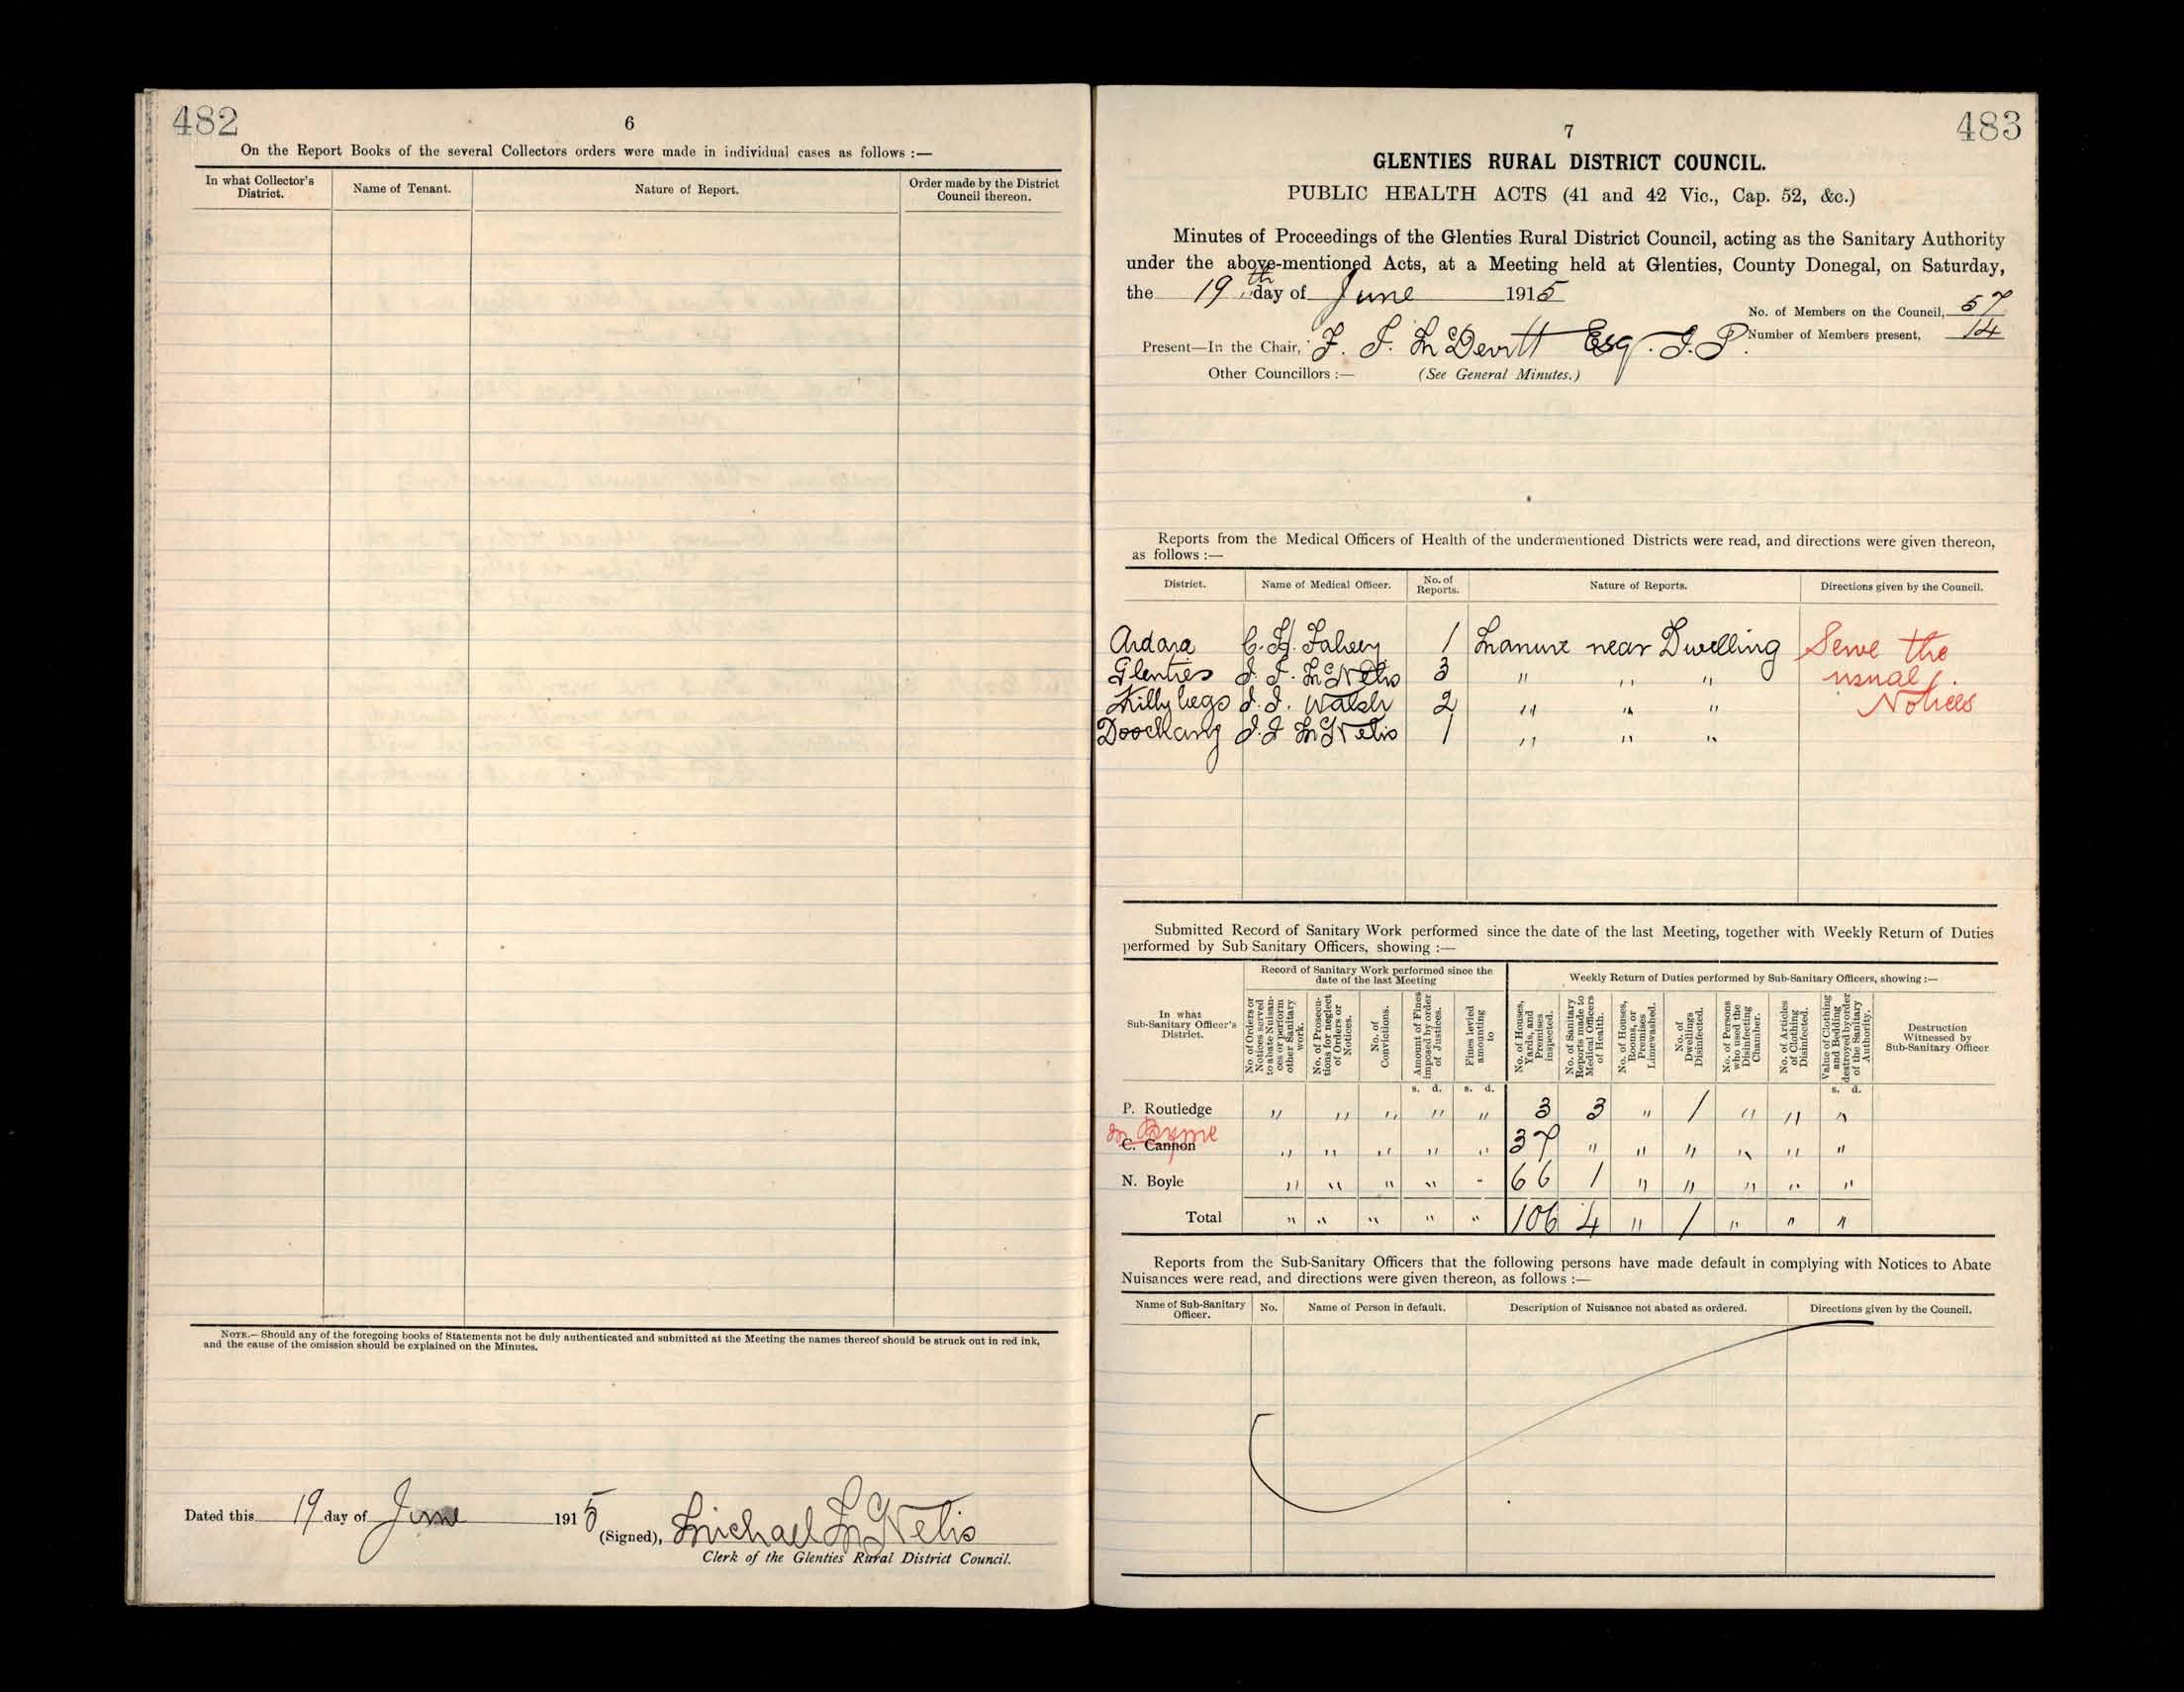 482
6
On the Report Books of the several Collectors orders were made in individual cases as follows :—
In what Collector's District. Name of Tenant. Nature of Report. Order made by the District Council thereon.
NOTE.—Should any of the foregoing books of Statements not be duly authenticated and submitted at the Meeting the names thereof should be struck out in red ink,
and the cause of the omission should be explained on the Minutes.
Dated this 19 day of June 1915
(Signed), Michael McNelis
Clerk of the Glenties Rural District Council.
483
7
GLENTIES RURAL DISTRICT COUNCIL.
PUBLIC HEALTH ACTS (41 and 42 Vic., Cap. 52, &c.)
Minutes of Proceedings of the Glenties Rural District Council, acting as the Sanitary Authority
under the above-mentioned Acts, at a Meeting held at Glenties, County Donegal, on Saturday,
the 19th day of June 1915
No. of Members on the Council, 57
Present—In the Chair, F. J. McDevitt Esq. J.P. Number of Members present, 14
Other Councillors :— (See General Minutes.)
Reports from the Medical Officers of Health of the undermentioned Districts were read, and directions were given thereon,
as follows :—
District. Name of Medical Officer. No. of Reports. Nature of Reports. Directions given by the Council.
Ardara C. H. Falvey 1 Manure near Dwelling Serve the
Glenties J. F. McNelis 3 " " " usual
Killybegs J. J. Walsh 2 " " " Notices
Doochary J. J McNelis 1 " " "
Submitted Record of Sanitary Work performed since the date of the last Meeting, together with Weekly Return of Duties
performed by Sub Sanitary Officers, showing :—
Record of Sanitary Work performed since the date of the last Meeting
Weekly Return of Duties performed by Sub-Sanitary Officers, showing :—
In what Sub-Sanitary Officer's District.
No. of Orders or Notices served to abate Nuisances or perform other Sanitary work.
No. of Prosecutions for neglect of Orders or Notices.
No. of Convictions.
Amount of Fines imposed by order of Justices.
Fines levied amounting to
No. of Houses, Yards, and Premises Inspected.
No. of Sanitary Reports made to Medical Officers of Health.
No. of Houses, Rooms, or Premises Limewashed.
No. of Dwellings Disinfected.
No. of Persons who used the Disinfecting Chamber.
No. of Articles of Clothing Disinfected.
Value of Clothing and Bedding destroyed by order of the Sanitary Authority.
Destruction Witnessed by Sub-Sanitary Officer
s. d. s. d. s. d.
P. Routledge " " " " " 3 3 " 1 " " "
M Byrne
C. Cannon " " " " " 37 " " " " " "
N. Boyle " " " " - 66 1 " " " " "
Total " " " " " 106 4 " 1 " " "
Reports from the Sub-Sanitary Officers that the following persons have made default in complying with Notices to Abate
Nuisances were read, and directions were given thereon, as follows :—
Name of Sub-Sanitary Officer. No. Name of Person in default. Description of Nuisance not abated as ordered. Directions given by the Council.